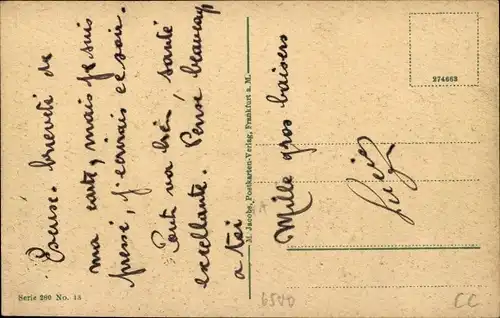 Excuse brièveté de
ma carte, mais je suis
pressé, j'écrirais ce soir.
Tout va bien, santé
excellante. Pense beaucoup
a toi
Mille gros baisers
M. Jacobs, Postkarten-Verlag, Frankfurt a. M.
274663
Serie 260 No. 13
6500
CC